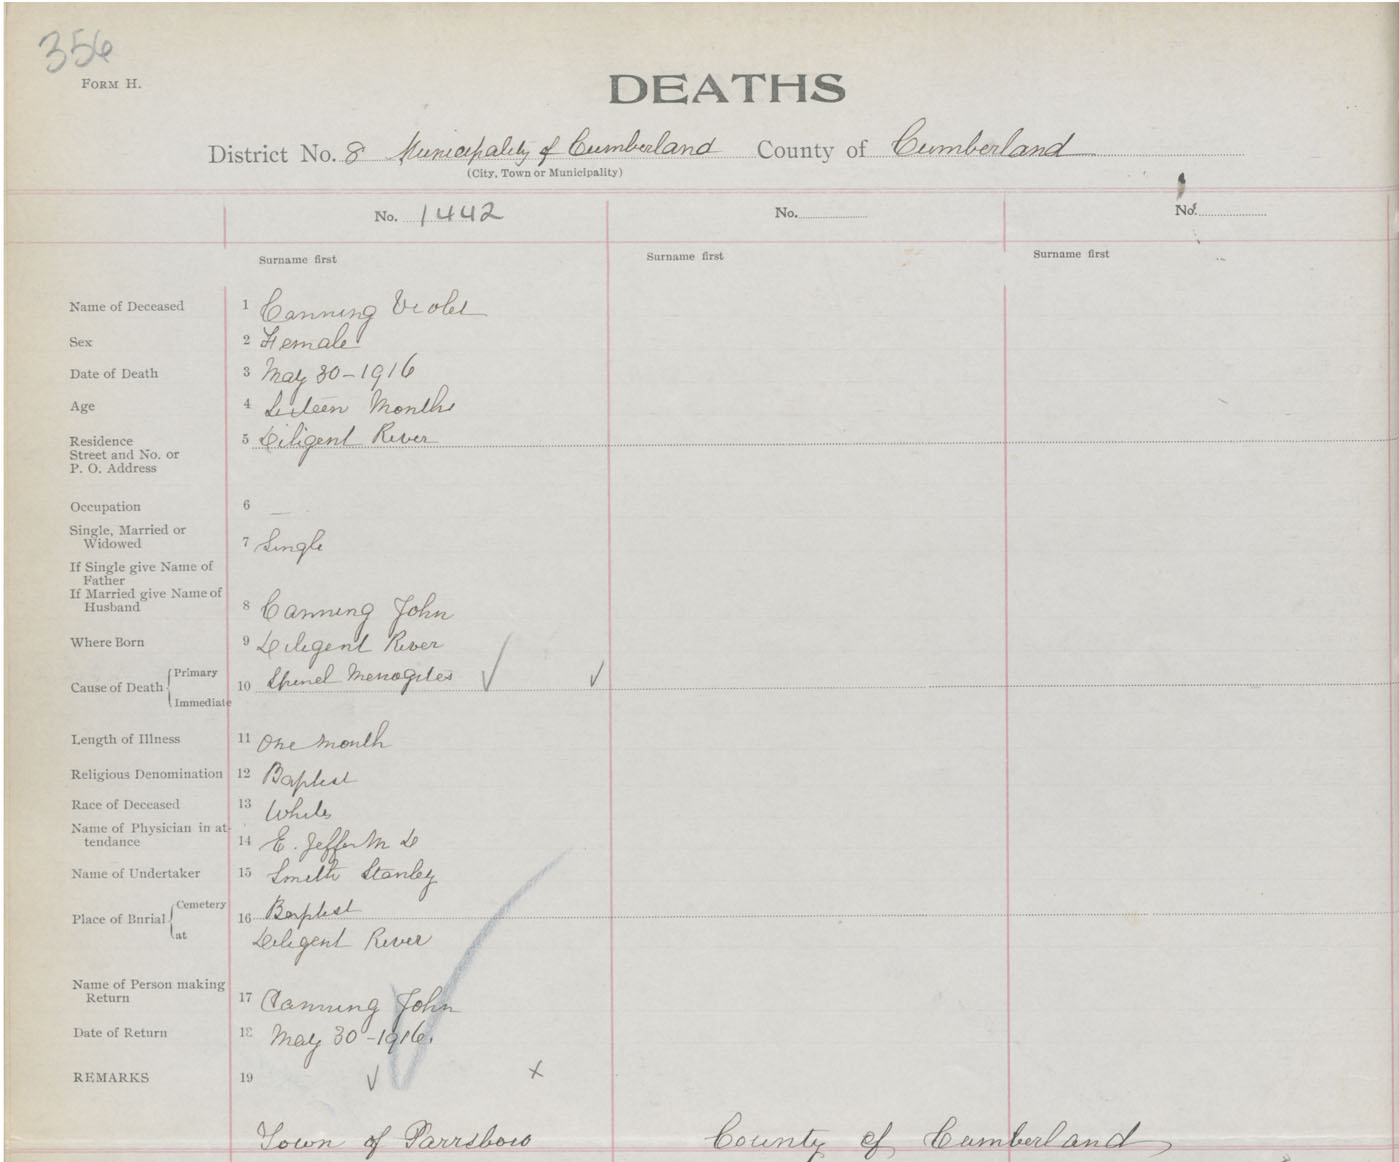 356
FORM H.
DEATHS
District No. 8 Municipality of Cumberland County of Cumberland
(City, Town or Municipality)
No. 1442
No.
No.
Surname first
Surname first
Surname first
Name of Deceased 1 Canning Violet
Sex 2 Female
Date of Death 3 May 30-1916
Age 4 Sixteen Months
Residence 5 Diligent River
Street and No. or
P. O. Address
Occupation 6 —
Single, Married or
Widowed 7 Single
If Single give Name of
Father
If Married give Name of
Husband 8 Canning John
Where Born 9 Diligent River
Cause of Death { Primary Immediate 10 Spinel Menogites
Length of Illness 11 One Month
Religious Denomination 12 Baptist
Race of Deceased 13 White
Name of Physician in at-
tendance 14 E. Jeffers M D
Name of Undertaker 15 Smith Stanley
Place of Burial { Cemetery 16 Baptist
at Diligent River
Name of Person making
Return 17 Canning John
Date of Return 18 May 30-1916.
REMARKS 19 x
Town of Parrsboro County of Cumberland